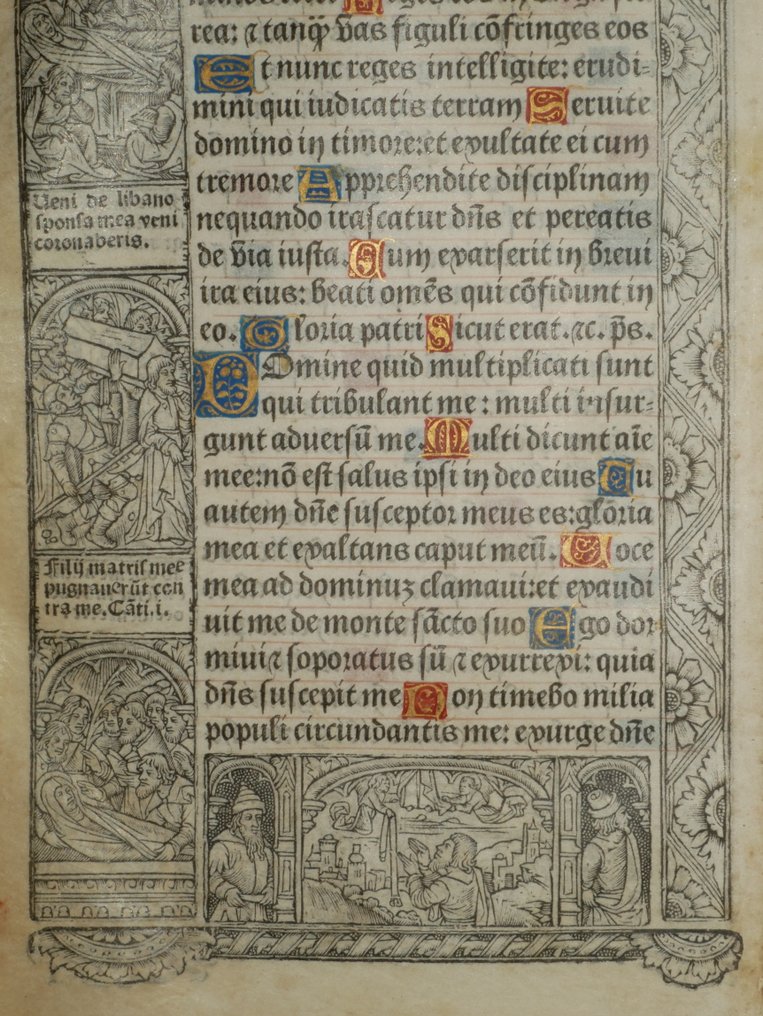 rea: ⁊ tanq̃ vas figuli cõfringes eos
Et nunc reges intelligite: erudi⸗
mini qui iudicatis terram Seruite
domino in timore: et exultate ei cum
tremore Apprehendite disciplinam
nequando irascatur dñs et pereatis
de via iusta. Cum exarserit in breui
ira eius: beati omẽs qui cõfidunt in
eo. Gloria patri Sicut erat. ⁊c. p̃s.
DOmine quid multiplicati sunt
qui tribulant me: multi insur⸗
gunt aduersũ me. Multi dicunt aĩe
mee: nõ est salus ipsi in deo eius Tu
autem dñe susceptor meus es: gloria
mea et exaltans caput meũ. Uoce
mea ad dominuz clamaui: et exaudi
uit me de monte sãcto suo Ego dor
miui ⁊ soporatus sũ ⁊ exurrexi: quia
dñs suscepit me Non timebo milia
populi circundantis me: exurge dñe
Veni de libano
sponsa mea veni
coronaberis.
Filij matris mee
pugnauerũt con
tra me. Cãti. i.